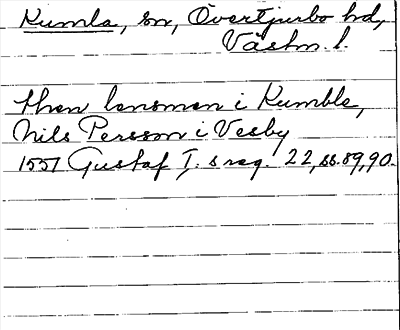 Kumla, sn, Övertjurbo hd,
Västm. l.
then lensman i Kumble,
Nils Persson i Vesby
1551 Gustaf I. s reg. 22, ss. 89, 90.